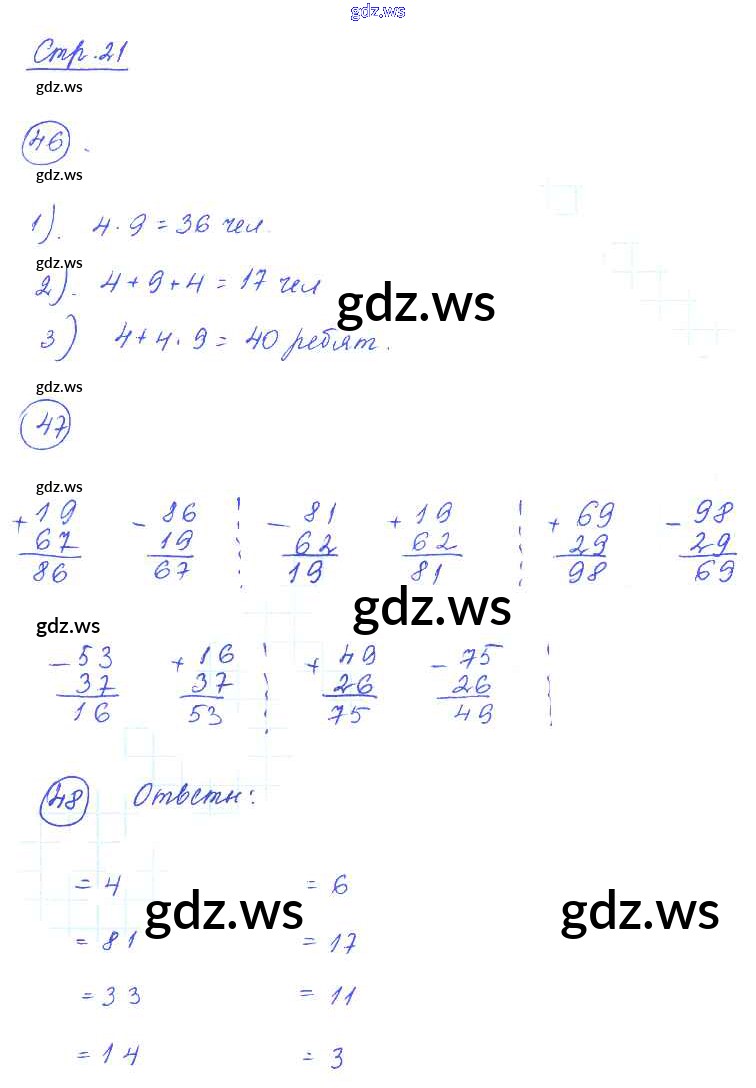 gdz.ws
Стр. 21
gdz.ws
46.
gdz.ws
1). 4 · 9 = 36 чел.
gdz.ws
2). 4 + 9 + 4 = 17 чел
gdz.ws
3) 4 + 4 · 9 = 40 ребят.
gdz.ws
47
gdz.ws
+ 19 - 86 - 81 + 19 + 69 - 98
67 19 62 62 29 29
86 67 19 81 98 69
gdz.ws
gdz.ws
- 53 + 16 + 49 - 75
37 37 26 26
16 53 75 49
48 Ответы:
= 4 = 6
gdz.ws gdz.ws
= 81 = 17
= 33 = 11
= 14 = 3